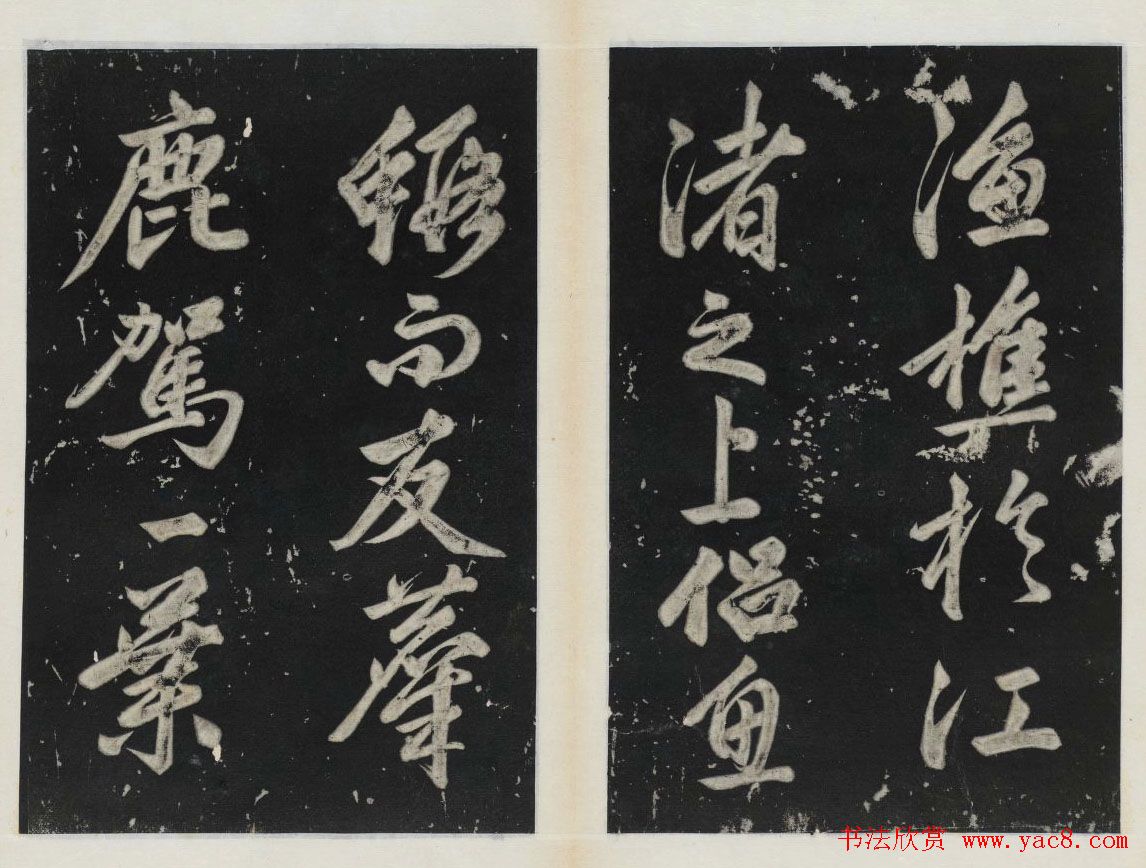 漁樵於江
渚之上侶魚
鰕而友麋
鹿駕一葉
书法欣赏 www.yac8.com